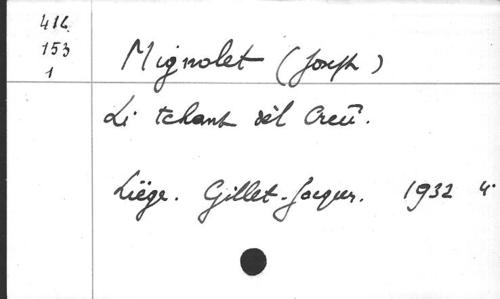 414
153
1
Mignolet (Joseph)
Li tchant dèl Creû.
Liége. Gillet-Jacques. 1932 4°